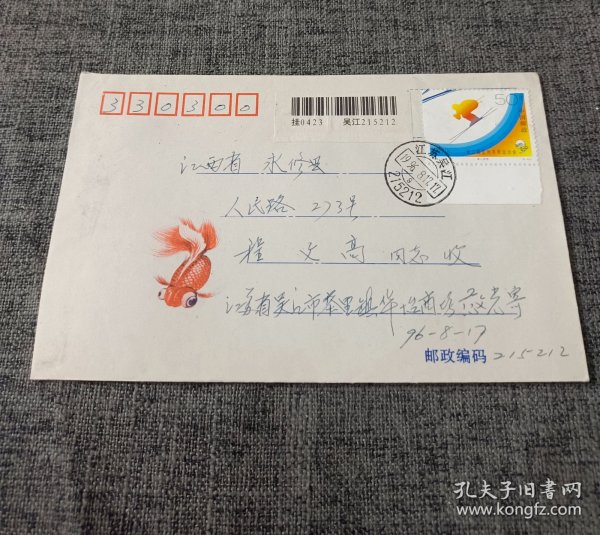 330300
挂0423 吴江215212
50
江苏吴江
1996.8.17.12
215212
江西省 永修县
人民路 273号
程文高 同志 收
江苏省吴江市 镇 寄
96-8-17
邮政编码 215212
孔夫子旧书网
www.kongfz.com